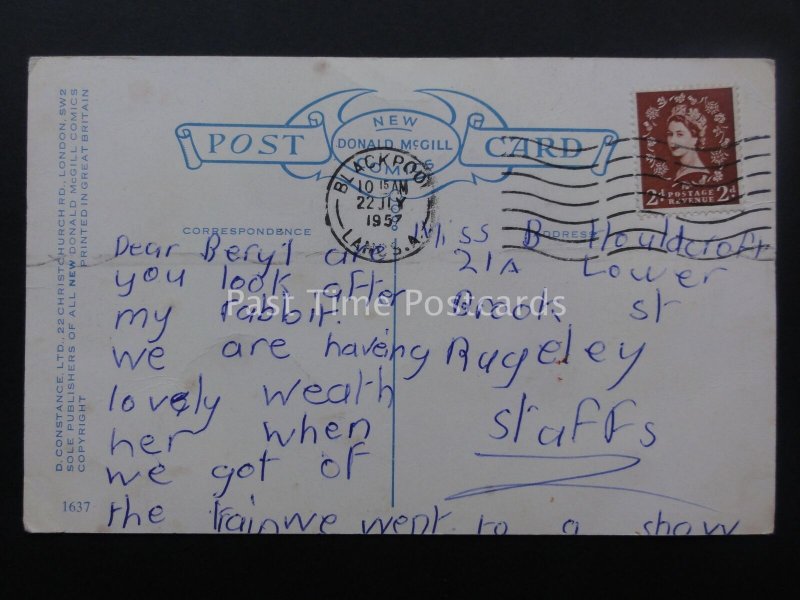 POST CARD
NEW
DONALD McGILL
COMICS
BLACKPOOL
10 15 AM
22 JLY
1957
LANCS. A
POSTAGE
REVENUE
2d 2d
CORRESPONDENCE
ADDRESS
Dear Beryl are
you look after
my rabbit.
we are haveing
lovely weath
her when
we got of
the train we went to a show
Miss B Houldcroft
21A Lower
Brook st
Rugeley
Staffs
D. CONSTANCE, LTD., 22 CHRISTCHURCH RD., LONDON, SW2
SOLE PUBLISHERS OF ALL NEW DONALD McGILL COMICS
COPYRIGHT PRINTED IN GREAT BRITAIN
1637
Past Time Postcards